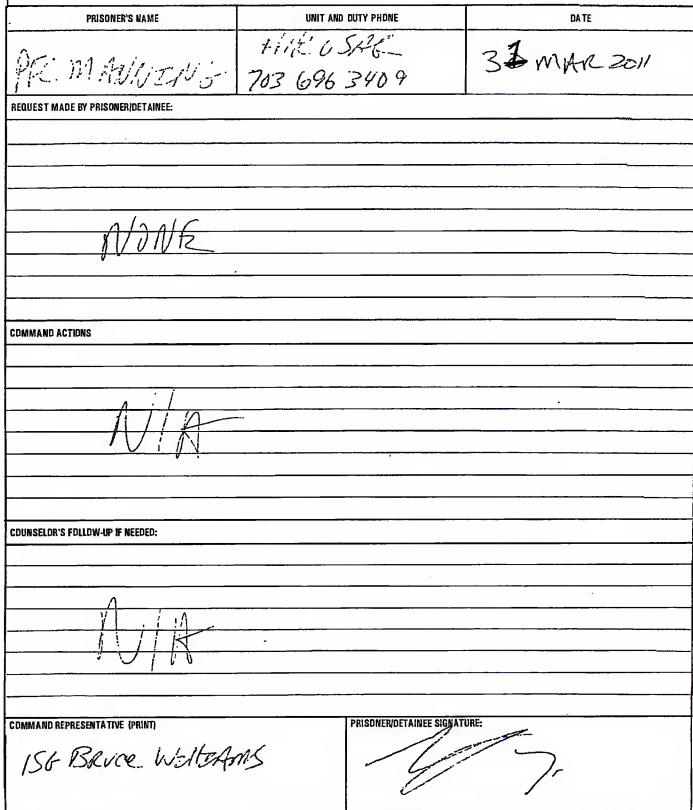 PRISONER'S NAME
UNIT AND DUTY PHONE
DATE
PFC MANNING
703 696 3409
31 MAR 2011
REQUEST MADE BY PRISONER/DETAINEE:
NONE
COMMAND ACTIONS
N/A
COUNSELOR'S FOLLOW-UP IF NEEDED:
N/A
COMMAND REPRESENTATIVE (PRINT)
PRISONER/DETAINEE SIGNATURE:
1SG Bruce Williams